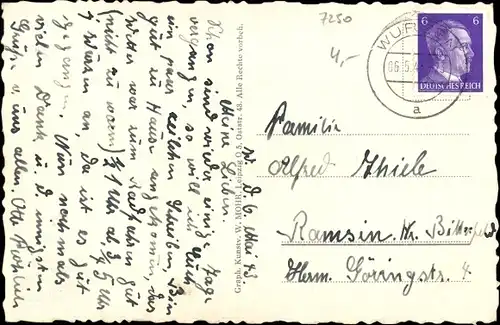 7250
4,-
W. d. 6. Mai 43
Meine Lieben.
Schon sind wieder einige Tage
vergangen, so will ich Euch
ein paar Zeilen schreiben. Bin
gut zu Hause angekommen, das
Wetter war zum Radfahren gut
(nicht zu warm) ½ 1 Uhr ab, ¾ 5 Uhr
waren an, da ist es gut
gegangen. Nun nochmals
vielen Dank u. d. innigsten
Grüße v. uns allen. Otto
Graph. Kunstv. W. MOHR, Leipzig O 5, Oststr. 48. Alle Rechte vorbeh.
WUR
06.5.4
a
6 6
DEUTSCHES REICH
Familie
Alfred Thiele
Ramsin Kr. Bitterfeld
Herm. Göringstr. 4